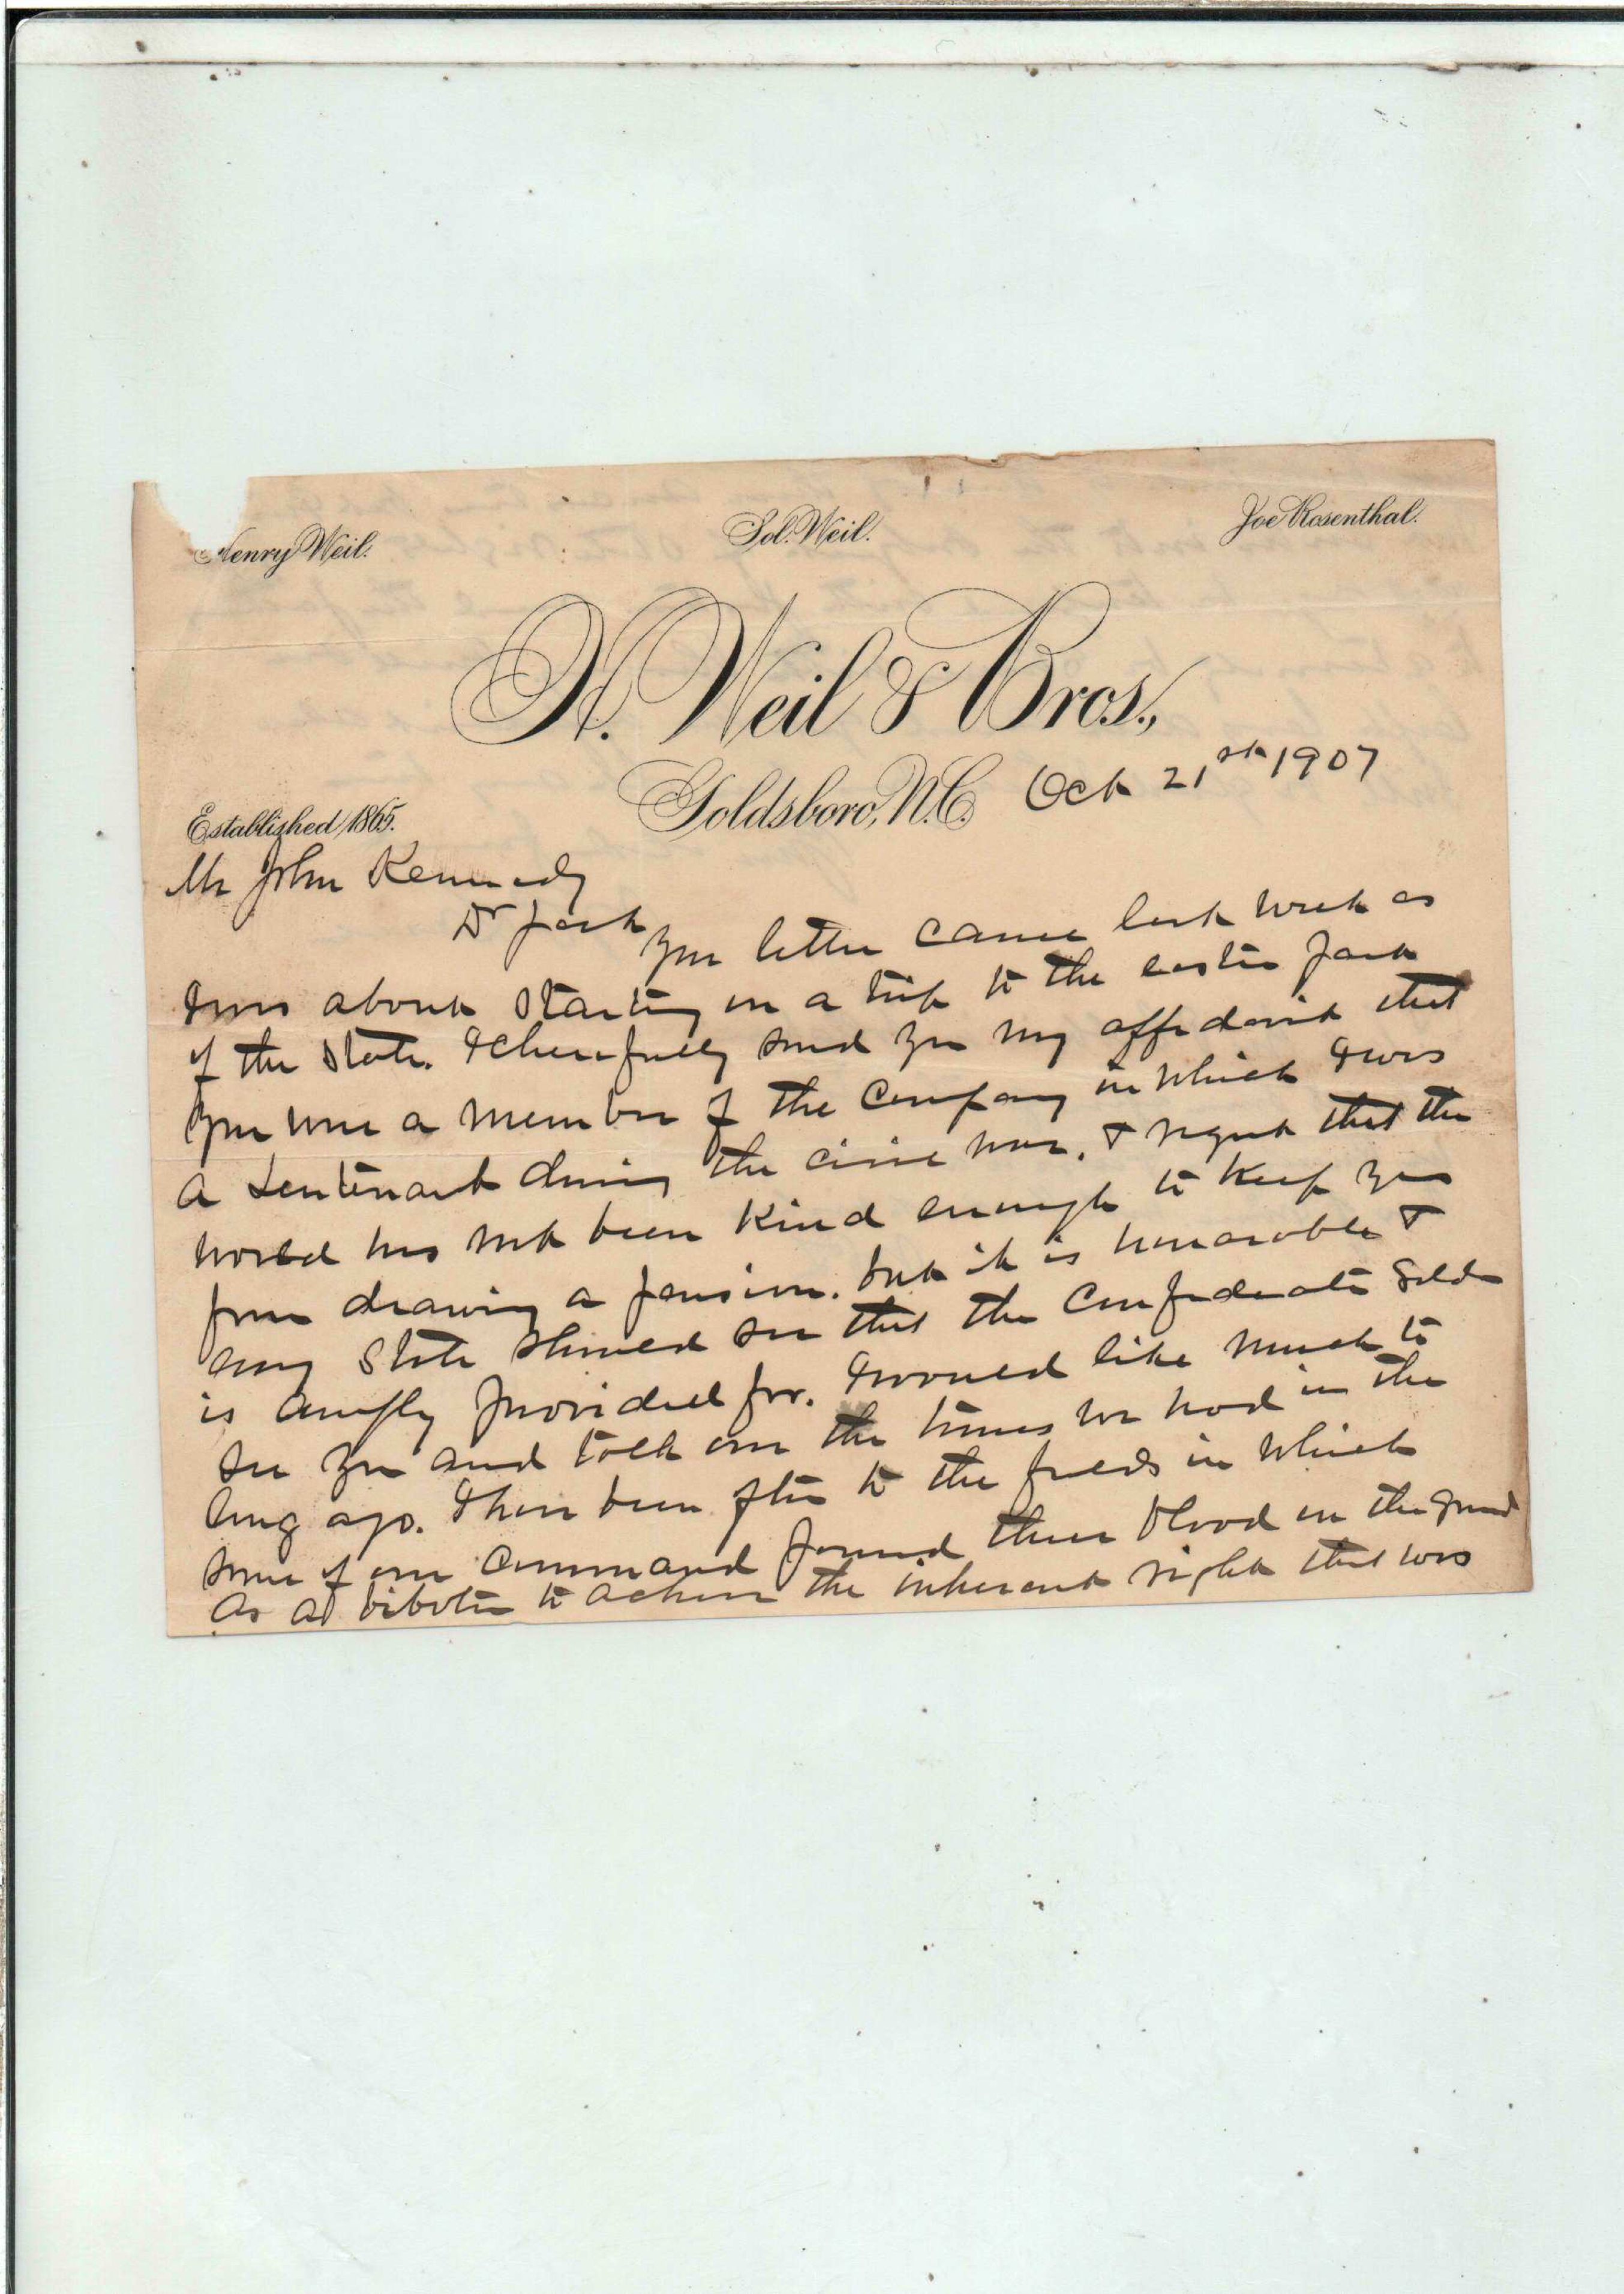 Henry Weil.
Sol. Weil.
Joe Rosenthal.
H. Weil & Bros.,
Goldsboro, N.C. Oct 21st 1907
Established 1865.
Mr John Kennedy
Dr Jack
Your letter came last week as
I was about starting on a trip to the eastern part
of the state. I cheerfully send you my affidavit that
you were a member of the Company in which I was
a Leutenant during the civil war. I regret that the
world has not been kind enough to keep you
from drawing a pension. but it is honorable &
any State should see that the Confederate Soldr
is amply provided for. I would like much to
see you and talk over the times we had in the
long ago. I have been often to the fields in which
some of our command poured their blood on the ground
as a to the inherent right that was